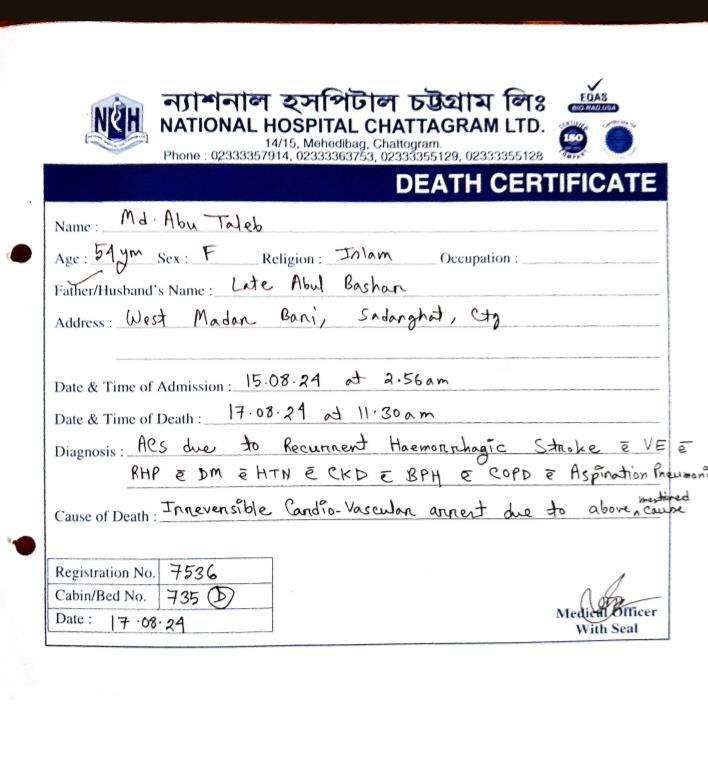 ন্যাশনাল হসপিটাল চট্টগ্রাম লিঃ
EQAS
BIO-RAD, USA
NCH
NATIONAL HOSPITAL CHATTAGRAM LTD.
ISO
14/15, Mehedibag, Chattogram.
Phone : 02333357914, 02333363753, 02333355129, 02333355128
DEATH CERTIFICATE
Name : Md. Abu Taleb
Age : 54 yrs Sex : F Religion : Islam Occupation :
Father/Husband's Name : Late Abul Bashar
Address : West Madar Bari, Sadarghat, Ctg
Date & Time of Admission : 15.08.24 at 2.56am
Date & Time of Death : 17.08.24 at 11.30am
Diagnosis : ACS due to Recurrent Haemorrhagic Stroke c̄ VE c̄
RHP c̄ DM c̄ HTN c̄ CKD c̄ BPH c̄ COPD c̄ Aspiration Pneumoni
Cause of Death : Irreversible Cardio-Vascular arrest due to above mentioned cause
Registration No. 7536
Cabin/Bed No. 735 D
Date : 17.08.24
Medical Officer
With Seal